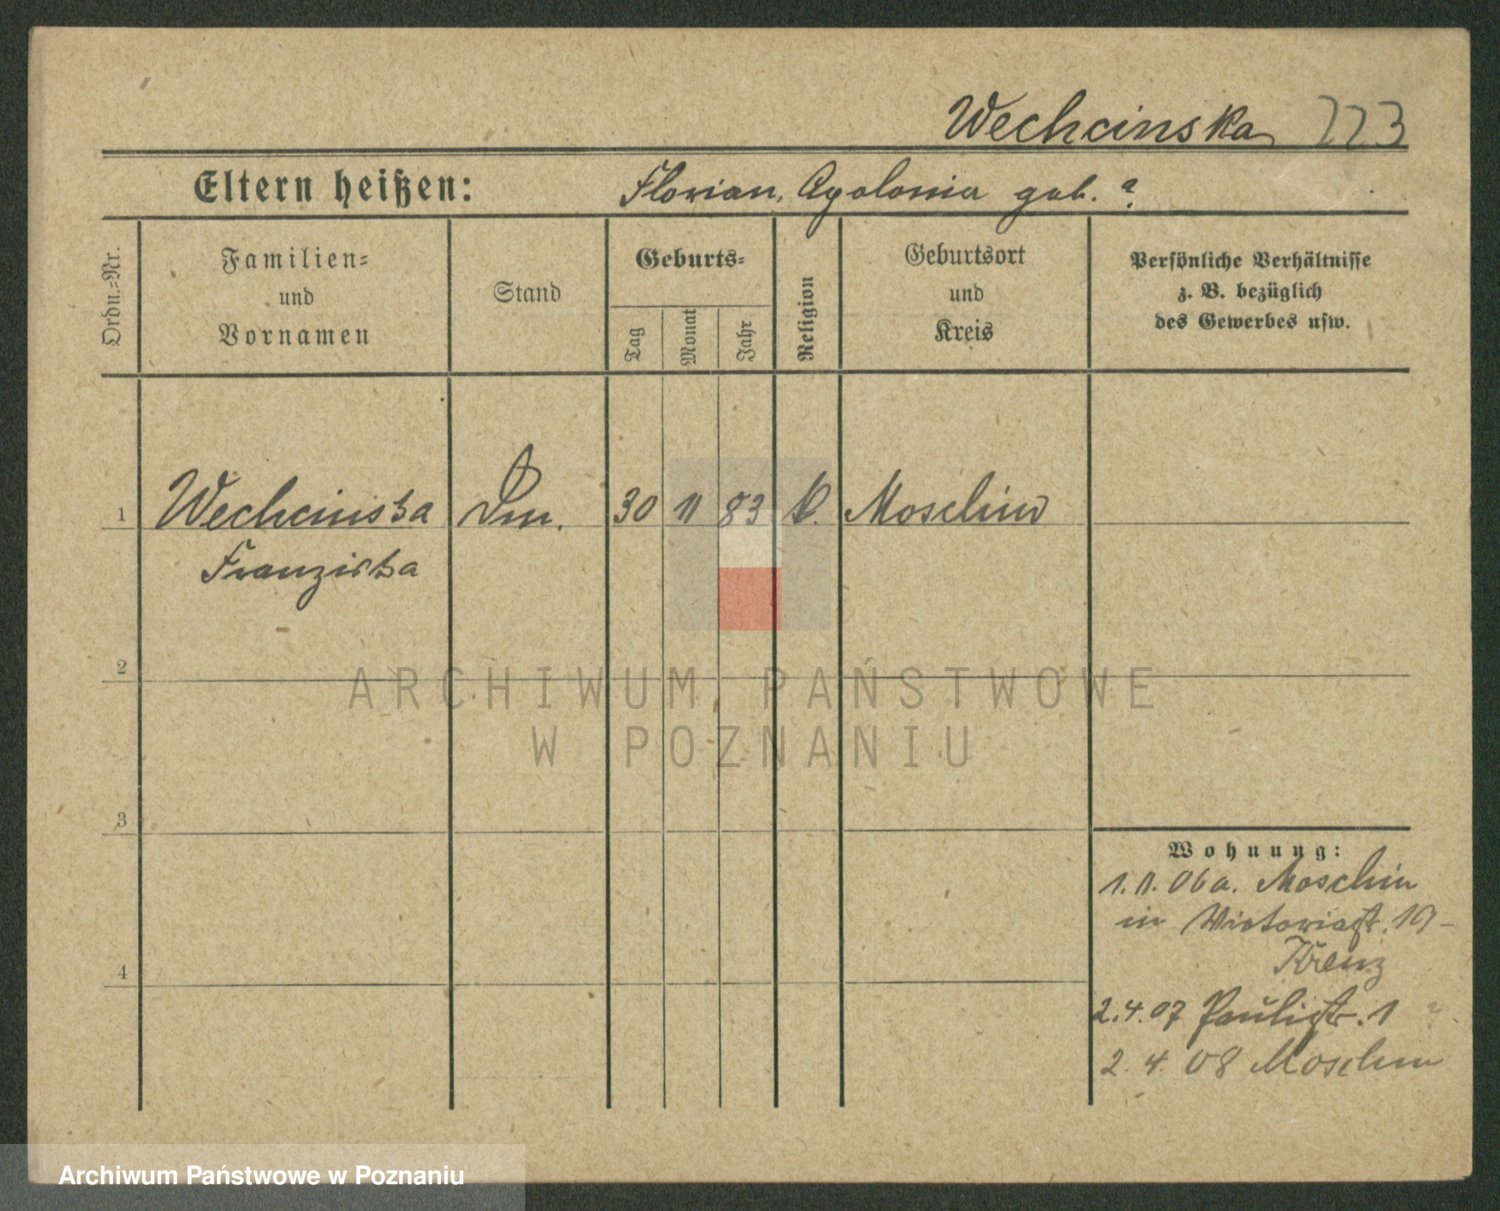 Wechcinska 223
Eltern heißen: Florian, Apolonia geb. ?
Ordn.-Nr.
Familien-
und
Vornamen
Stand
Geburts-
Tag
Monat
Jahr
Religion
Geburtsort
und
Kreis
Persönliche Verhältnisse
z. B. bezüglich
des Gewerbes usw.
1 Wechcinska 30 11 83 k. Moschin
Franziska
2
3
4
Wohnung:
1. 11. 06 a. Moschin
in Victoriastr. 19 -
2. 4. 07 Paulistr. 1
2. 4. 08 Moschin
ARCHIWUM PAŃSTWOWE
W POZNANIU
Archiwum Państwowe w Poznaniu